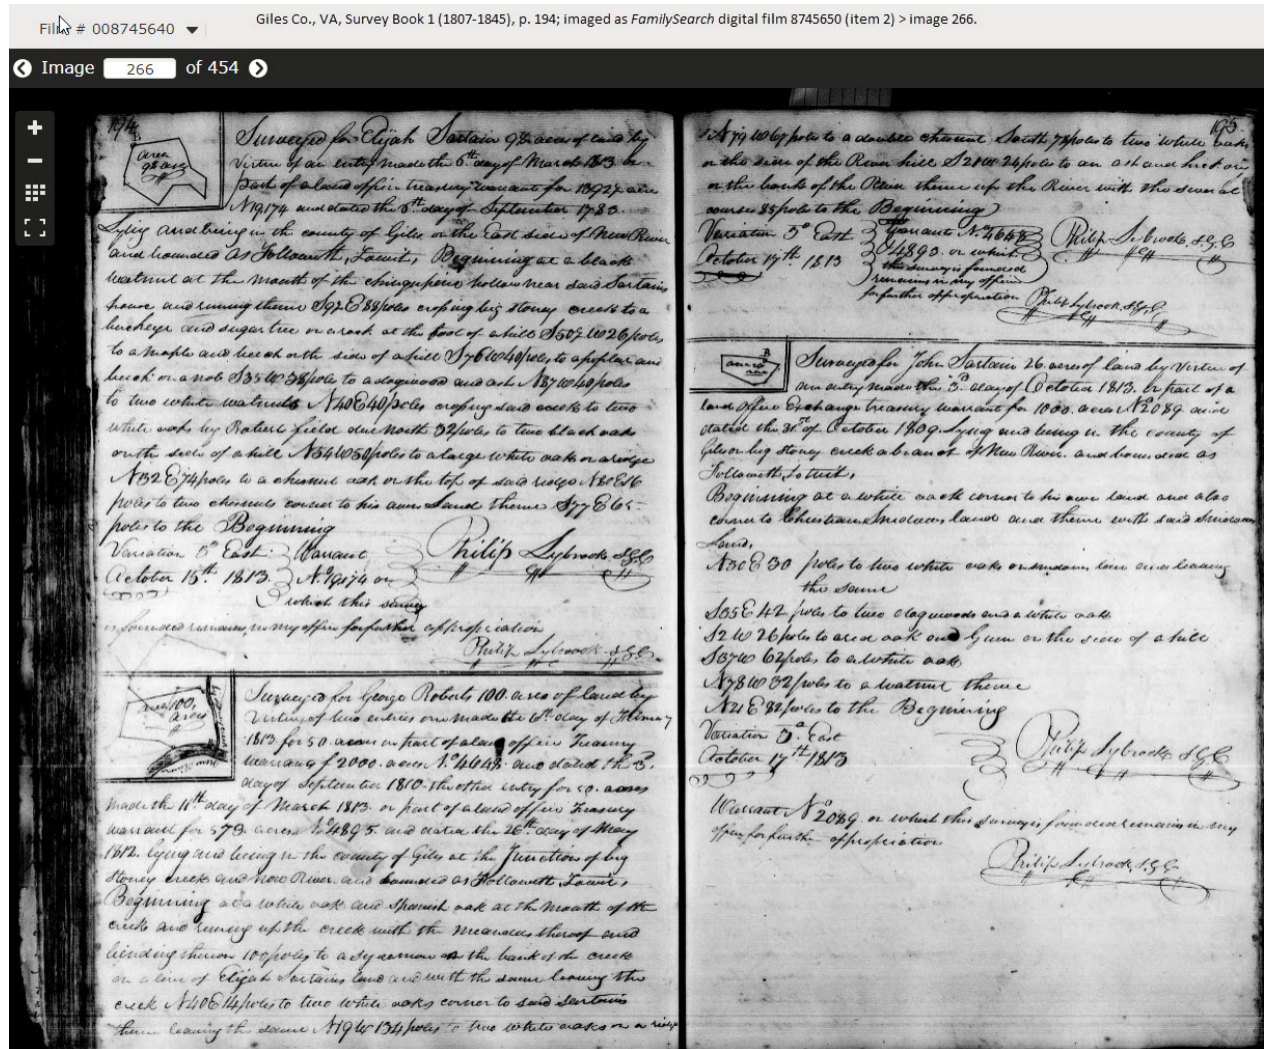 Giles Co., VA, Survey Book 1 (1807-1845), p. 194; imaged as FamilySearch digital film 8745650 (item 2) > image 266.
Film # 008745640
Image 266 of 454
194
area 98 acres
Surveyed for Elijah Sartain 98 acres of land by
Virtue of an entry made the 6th day of March 1813 on
part of a land office treasury warrant for 13927 acres
No 19174 and dated the 5th day of September 1783
Lying and being in the county of Giles on the East side of New River
and bounded as Followeth, Towit, Beginning at a black
walnut at the mouth of the chinquepine hollow near said Sartains
house and runing thence S92E 88 poles crosing big stoney creek to a
buckeye and sugar tree on a rock at the foot of a hill S50½W 26 poles
to a maple and beech on the side of a hill S76W 40 poles to a poplar and
beech on a nob S35W 38 poles to a dogwood and ash N87W 40 poles
to two white walnuts N40E 40 poles crosing said creek to two
white oaks by Roberts field due North 32 poles to two black oaks
on the side of a hill N54W 50 poles to a large white oak on a ridge
N132E 74 poles to a chesnut oak on the top of said ridge N80E 16
poles to two chesnuts corner to his own Land thence S77E 65
poles to the Beginning
Variation 5° East Warrant Philip Lybrook S.G.C
October 15th 1813 No. 19174 on
which this survey
is founded remains in my office for further appropriation
Philip Lybrook S.G.C.
area 100 acres
Surveyed for George Roberts 100 acres of land by
Virtue of two entries one made the 6th day of February
1813 for 50 acres on part of a land office Treasury
warrant f 2000 acres No. 4648 and dated th 3d
day of September 1810 the other entry for 50 acres
made th 11th day of March 1813 on part of a land office Treasury
warrant for 578 acres No 4895 and dated the 26th day of May
1812. Lying and being in the county of Giles at the Junction of big
Stoney creek and New River and bounded as Followeth Towit,
Beginning at a white oak and Spanish oak at the mouth of the
creek and runing up the creek with the meanders thereof and
binding thereon 100 poles to a sycamore on the bank of the creek
on a line of Elijah Sartains land and with the same leaving the
creek N40E 14 poles to two white oaks corner to said Sartains
thence leaving the same N19W 134 poles to two white oaks on a ridge
195
N79W 67 poles to a double chesnut South 78 poles to two white oaks
on the side of the River hill S21W 24 poles to an ash and hickory
on the bank of the River thence up the River with the several
courses 85 poles to the Beginning
Variation 5° East Warrants No. 4648 Philip Lybrook, S.G.C
October 17th 1813 & 4895 on which
this survey is founded
remains in my office
for further appropriation Philip Lybrook S.G.C
Surveyed for John Sartain 26 acres of land by Virtue of
an entry made this 3d day of October 1813 on part of a
land Office Exchange treasury warrant for 1000 acres No 2089 and
dated the 31st of October 1809 Lying and being in the county of
Giles on big stoney creek a branch of New River and bounded as
Followeth, to wit,
Beginning at a white oak corner to his own land and also
corner to Christian Snidows land and thence with said Snidows
Land,
N30E 30 poles to two white oaks on Snidows line and leaving
the same
S35E 42 poles to two dogwoods and a white oak
S2W 26 poles to a red oak and Gum on the side of a hill
S37W 62 poles to a white oak
N78W 32 poles to a walnut thence
N21E 82 poles to the Beginning
Variation 5° East Philip Lybrook S.G.C
October 17th 1813
Warrant No 2089 on which this survey is founded remains in my
office for further appropriation
Philip Lybrook, S.G.C